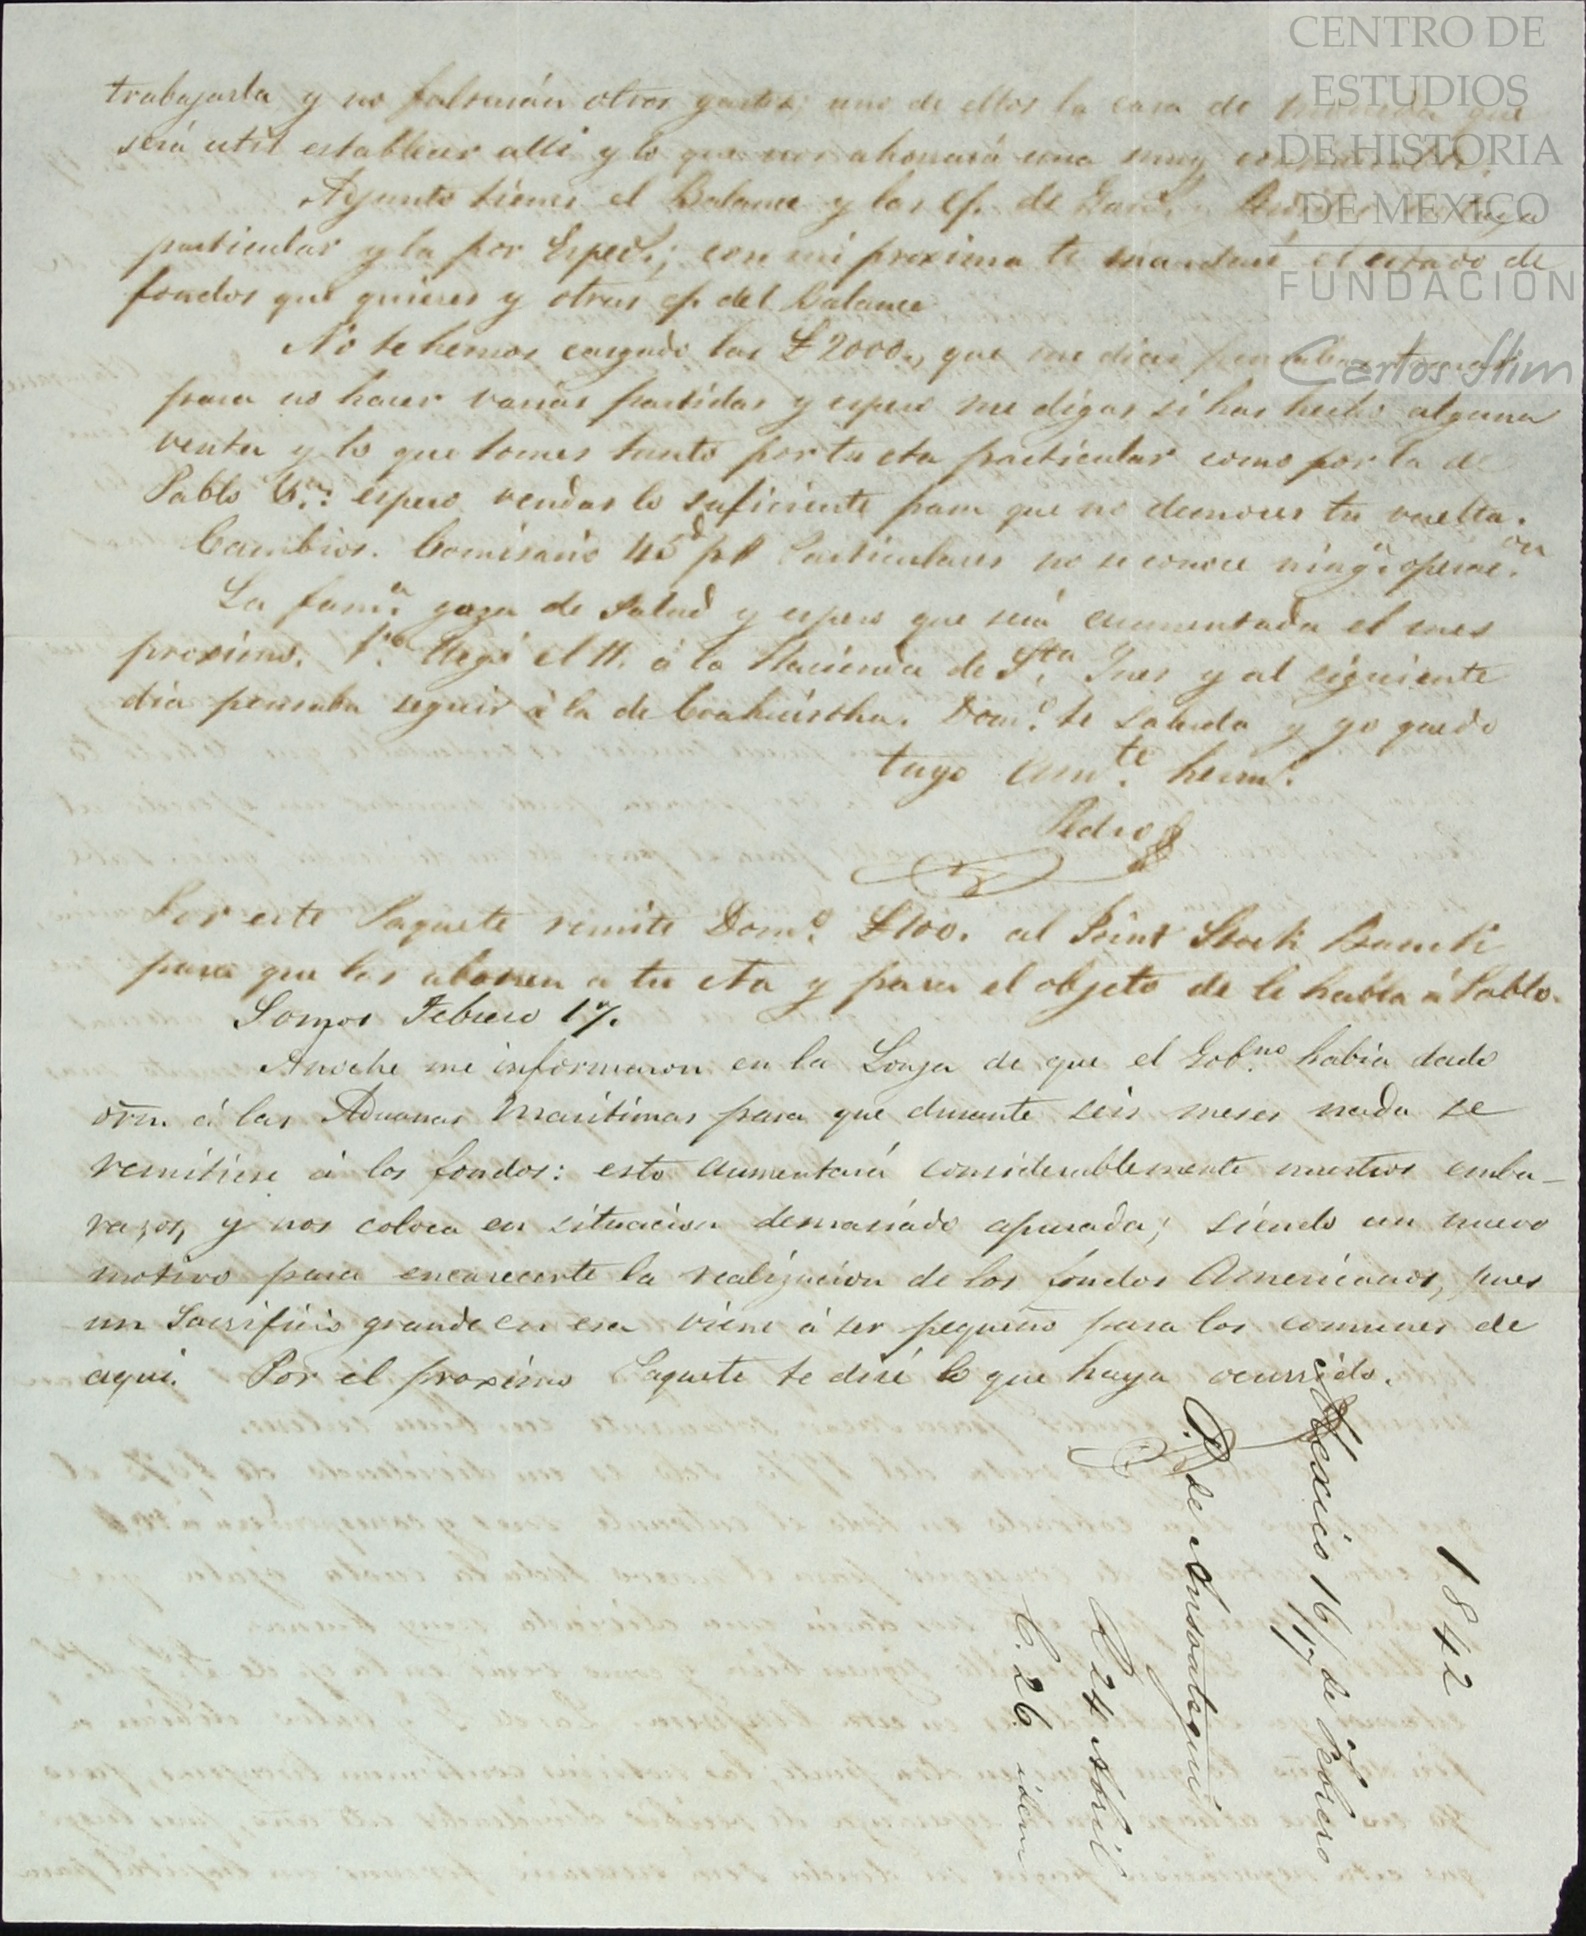 trabajarla y no faltarán otros gastos; uno de ellos la casa de moneda que
será util establecer alli y lo que nos ahorrará una muy considerable.
Adjunto tienes el Balance y las c/. de
particular y la por Esped.; con mi proxima te mandaré el estado de
fondos que quieres y otras c/. del Balance
No te hemos cargado las £2000., que me dices
para no hacer varias partidas y espero me digas si has hecho alguna
venta y lo que tomes tanto por tu cta particular como por la de
Pablo espero vendas lo suficiente para que no demores tu vuelta.
Cambios. Comisario 45d p$ Particulares no se conoce ning.a operac.on
La fam.a goza de salud y espero que será aumentada el mes
proximo. llegó el 11. á la Hacienda de Sta. Ines y al siguiente
dia pensaba seguir á la de Coahuistla. Dom.o te saluda y yo quedo
tuyo Am.te herm.o
Pedro
Por este Paquete remite Dom.o £100. al Joint Stock Bank
para que los abonen a tu cta y para el objeto de le habla á Pablo.
Somos Febrero 17.
Anoche me informaron en la Lonja de que el Gob.no habia dado
orn. á las Aduanas Maritimas para que durante seis meses nada se
remitiese á los fondos: esto aumentará considerablemente nuestros emba-
razos, y nos coloca en situacion demasiado apurada; siendo un nuevo
motivo para encarecerte la realizacion de los fondos Americanos, pues
un Sacrificio grande en esa viene á ser pequeño para los comunes de
aqui. Por el proximo Paquete te diré lo que haya ocurrido.
1842
Mexico 16/17 de Febrero
P. de Ansoategui
R 24 Abril
C. 26 idem
CENTRO DE
ESTUDIOS
DE HISTORIA
DE MEXICO
FUNDACIÓN
Carlos Slim